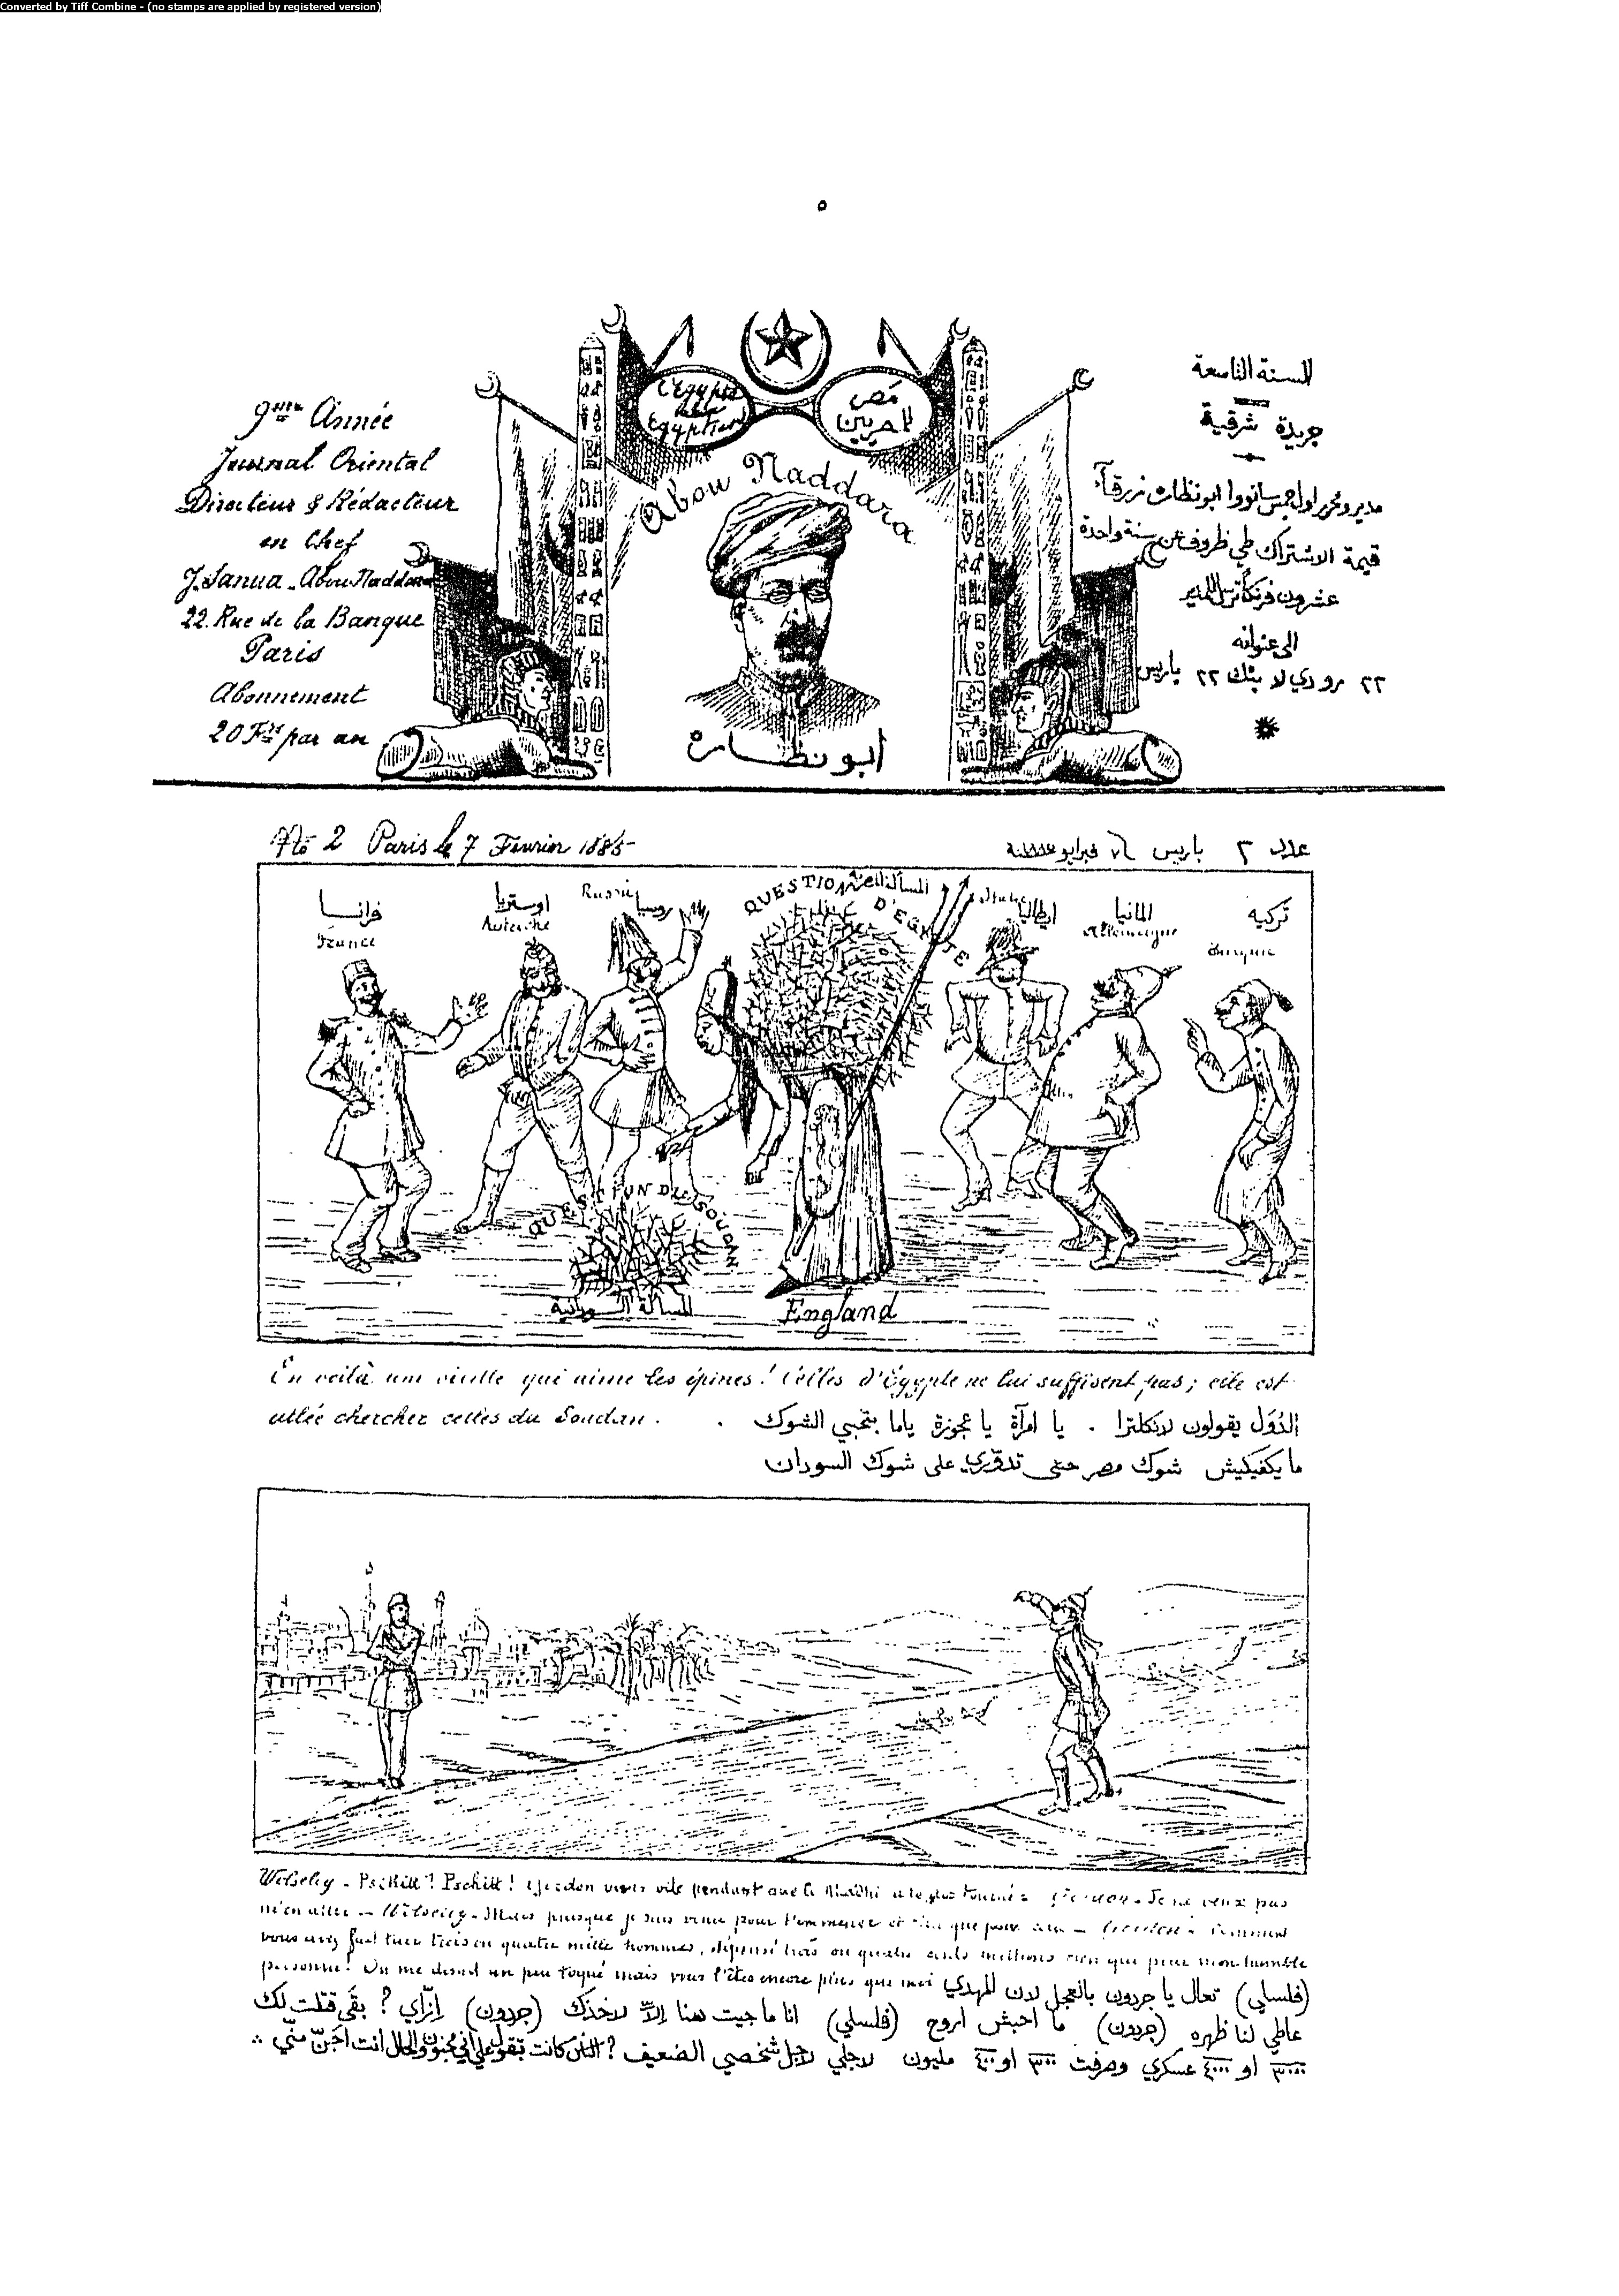 Converted by Tiff Combine - (no stamps are applied by registered version)
٥
9ème Année
Journal Oriental
Directeur & Rédacteur
en Chef
J. Sanua - Abou Naddara
22. Rue de la Banque
Paris
Abonnement
20 Frs par an
L'Egypte
Egyptiens
مصر
للمصريين
Abou Naddara
أبو نظارة
السنة التاسعة
جريدة شرقية
مدير ومحرر اول جمس سانووا ابو نظارة زرقآء
قيمة الاشتراك طي ظروف عن سنة واحدة
عشرون فرنكاً ترسل للمدير
الى عنوانه
٢٢ رو دي لا بنك ٢٢ باريس
No 2 Paris le 7 Février 1885
عدد ٢ باريس ٧ فبرايو
فرانسا
France
اوستريا
Autriche
Russie
روسيا
QUESTION D'EGYPTE
المسالة المصرية
Italie
ايطاليا
المانيا
Allemagne
تركيه
Turquie
QUESTION DU SOUDAN
المسالة السودانية
England
En voilà une vieille qui aime les épines! Celles d'Égypte ne lui suffisent pas; elle est
allée chercher celles du Soudan.
الدُوَل يقولون لانكلترا . يا امرآة يا عجوزة ياما بتحبي الشوك .
ما يكفيكيش شوك مصر حتى تدوّري على شوك السودان
Wolseley - Pschitt! Pschitt! Gordon viens vite pendant que le Madhi a le dos tourné = Gordon - Je ne veux pas
m'en aller - Wolseley - Mais puisque je suis venu pour t'emmener et rien que pour - Gordon - Comment
vous avez fait tuer trois ou quatre mille hommes, dépensé trois ou quatre cents millions rien que pour mon humble
personne! On me disait un peu toqué mais vous l'êtes encore plus que moi
(فلسلي) تعال يا جردون بالعجل لان المهدي
عاطي لنا ظهره (جردون) ما احبش اروح (فلسلي) انا ما جيت هنا الاّ لاخدك (جردون) ازّاي ? بقى قتلت لك
٣٠٠٠ او ٤٠٠٠ عسكري وصرفت ٣٠٠ او ٤٠٠ مليون لاجلي لاجل شخصي الضعيف ? الناس كانت تقول علي اني مجنون والحال انت اجَنّ منّي